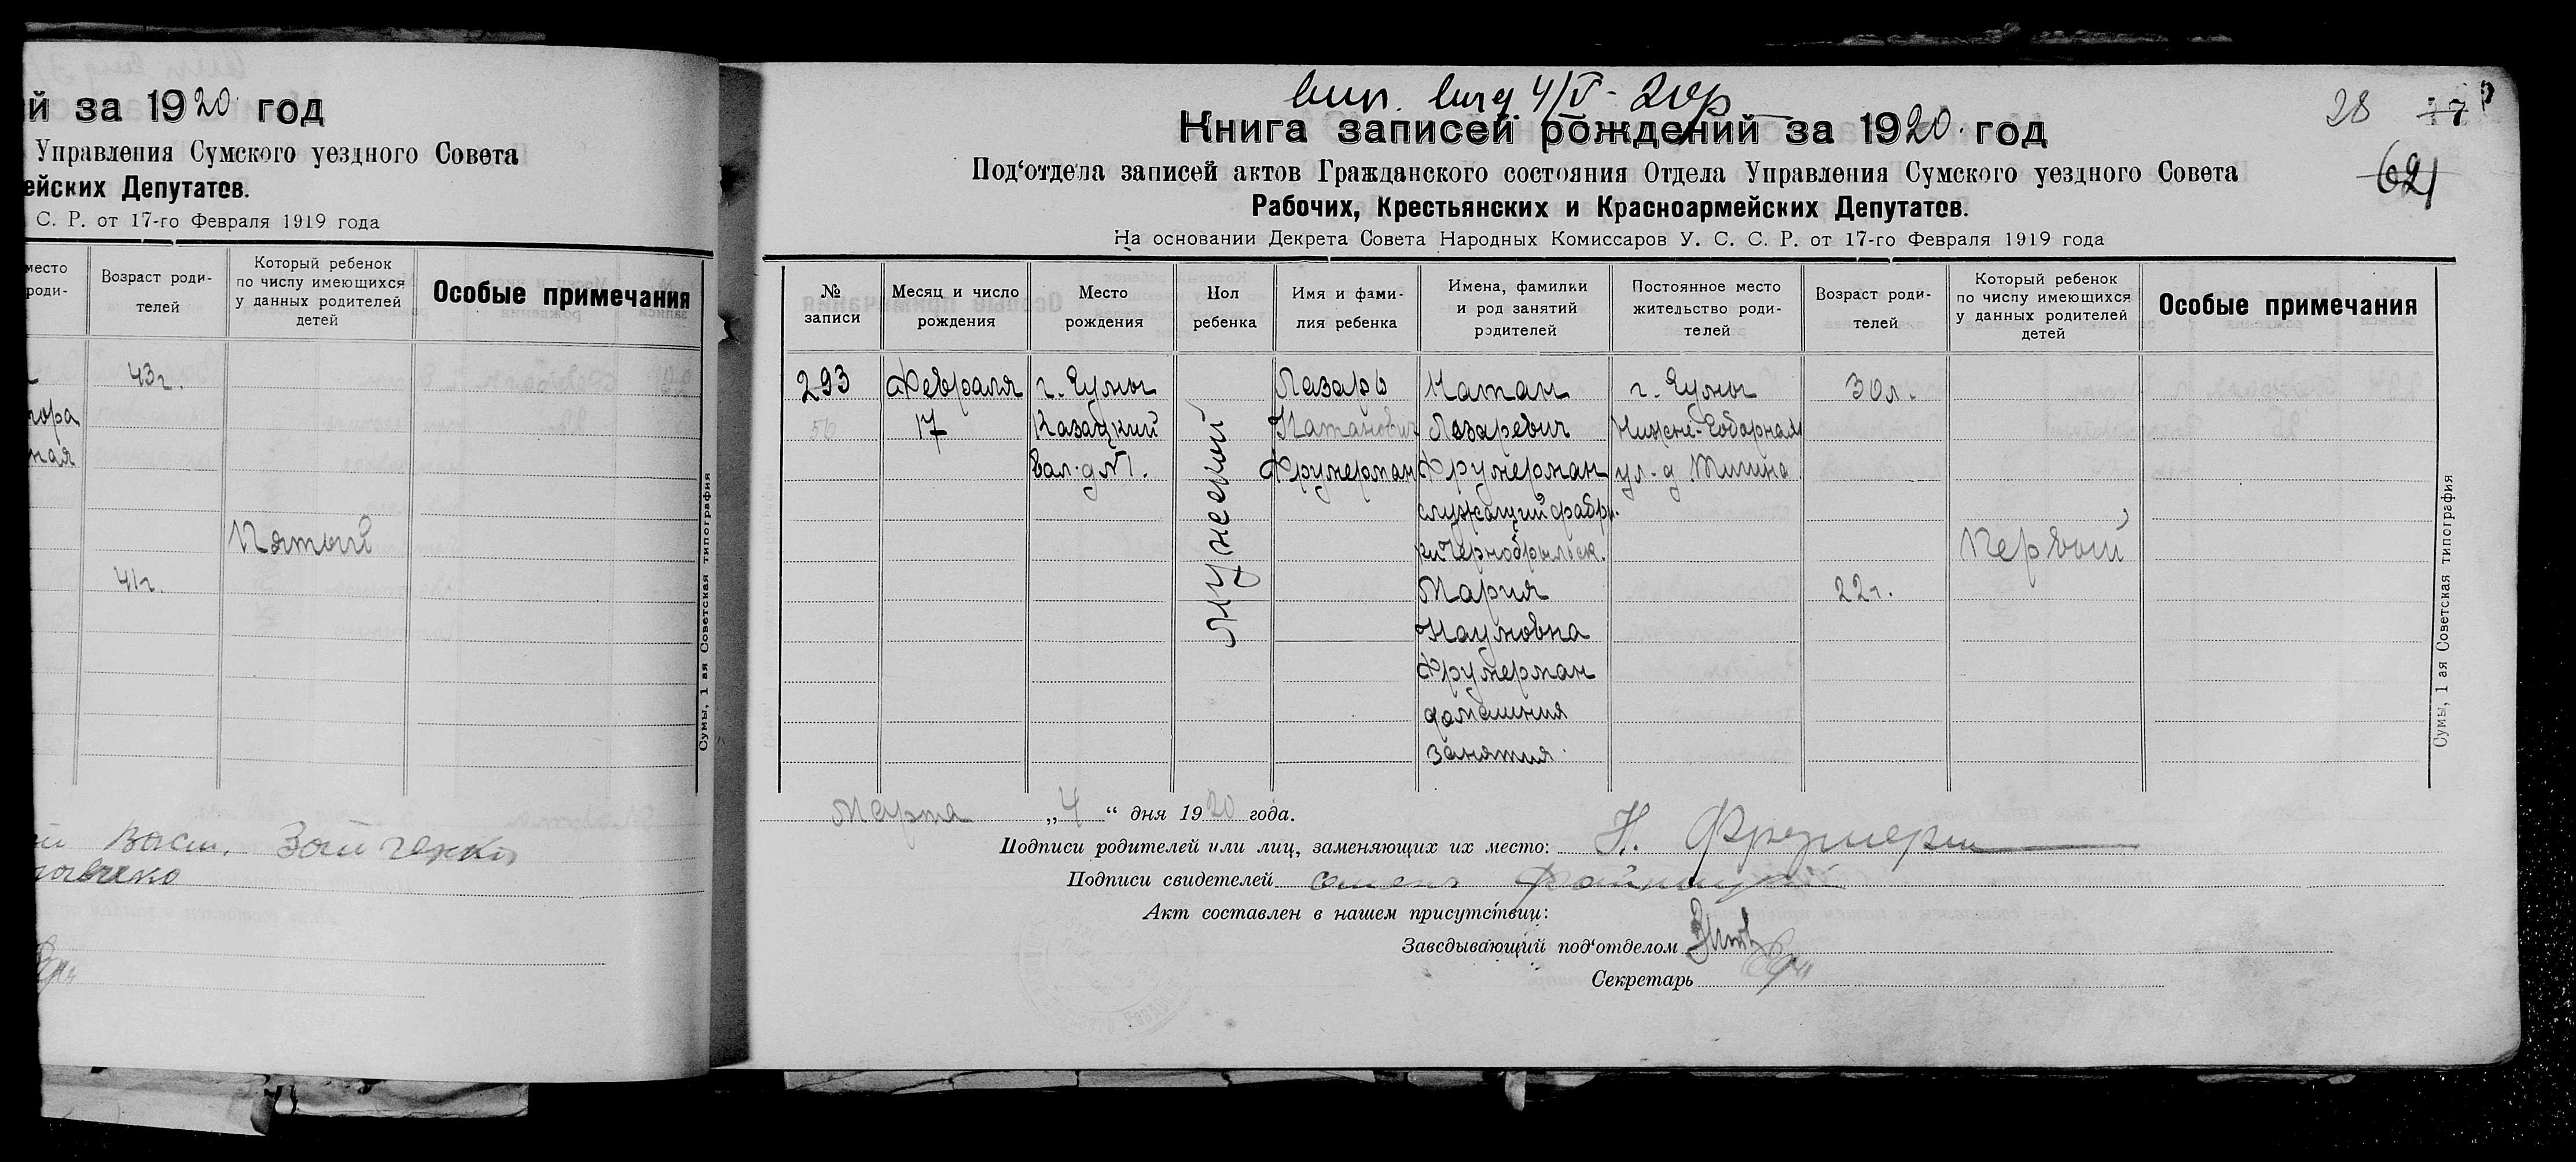 й за 1920 год
Управления Сумского уездного Совета
ейских Депутатов.
С. Р. от 17-го Февраля 1919 года
место
роди-
Возраст роди-
телей
Который ребенок
по числу имеющихся
у данных родителей
детей
Особые примечания
43 г.
тора
ная
Пятый
41 г.
Сумы, 1 ая Советская типография
Васи. Зайченко
вып. 4/V-20
28
621
Книга записей рождений за 1920 год
Под‘отдела записей актов Гражданского состояния Отдела Управления Сумского уездного Совета
Рабочих, Крестьянских и Красноармейских Депутатов.
На основании Декрета Совета Народных Комиссаров У. С. С. Р. от 17-го Февраля 1919 года
№
записи
Месяц и число
рождения
Место
рождения
Пол
ребенка
Имя и фами-
лия ребенка
Имена, фамилии
и род занятий
родителей
Постоянное место
жительство роди-
телей
Возраст роди-
телей
Который ребенок
по числу имеющихся
у данных родителей
детей
Особые примечания
293
56
Февраля
17
г. Сумы
Казацкий
вал. д № 1.
мужеской
Лазарь
Натанович
Фрумерман
Натан
Лазаревич
Фрумерман
служащий фабр.
Мария
Наумовна
Фрумерман
домашния
занятия.
г. Сумы
Нижне-Соборная
ул. д
30 л.
22 г.
Первый
Сумы, 1 ая Советская типография
Марта „4“ дня 1920 года.
Подписи родителей или лиц, заменяющих их место: Н. Фрумерман
Подписи свидетелей
Акт составлен в нашем присутствии:
Заведывающий под‘отделом
Секретарь